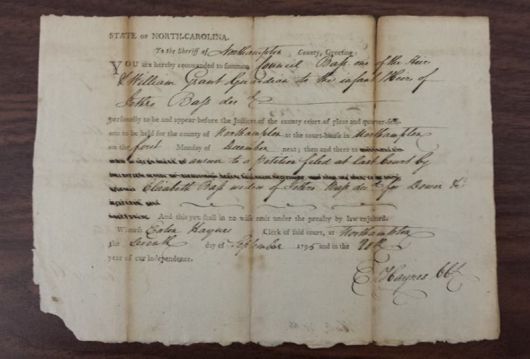 STATE OF NORTH-CAROLINA.
To the Sheriff of Northampton County, Greeting.
YOU are hereby commanded to summon Council Bass one of the Heirs
& William Grant Guardian to the infant Heir of
Bass decd
personally to be and appear before the Justices of the county court of pleas and quarter-sessions
to be held for the county of Northampton at the court-house in Northampton
on the first Monday of December next; then and there to
answer to a petition filed at last Court by
Elizabeth Bass widow of Bass decd for Dower &c
And this you shall in no wise omit under the penalty by law enjoined.
Witness Eaton Haynes Clerk of said court, at Northampton
the Seventh day of September 1795 and in the 20th
year of our independence.
E Haynes CC